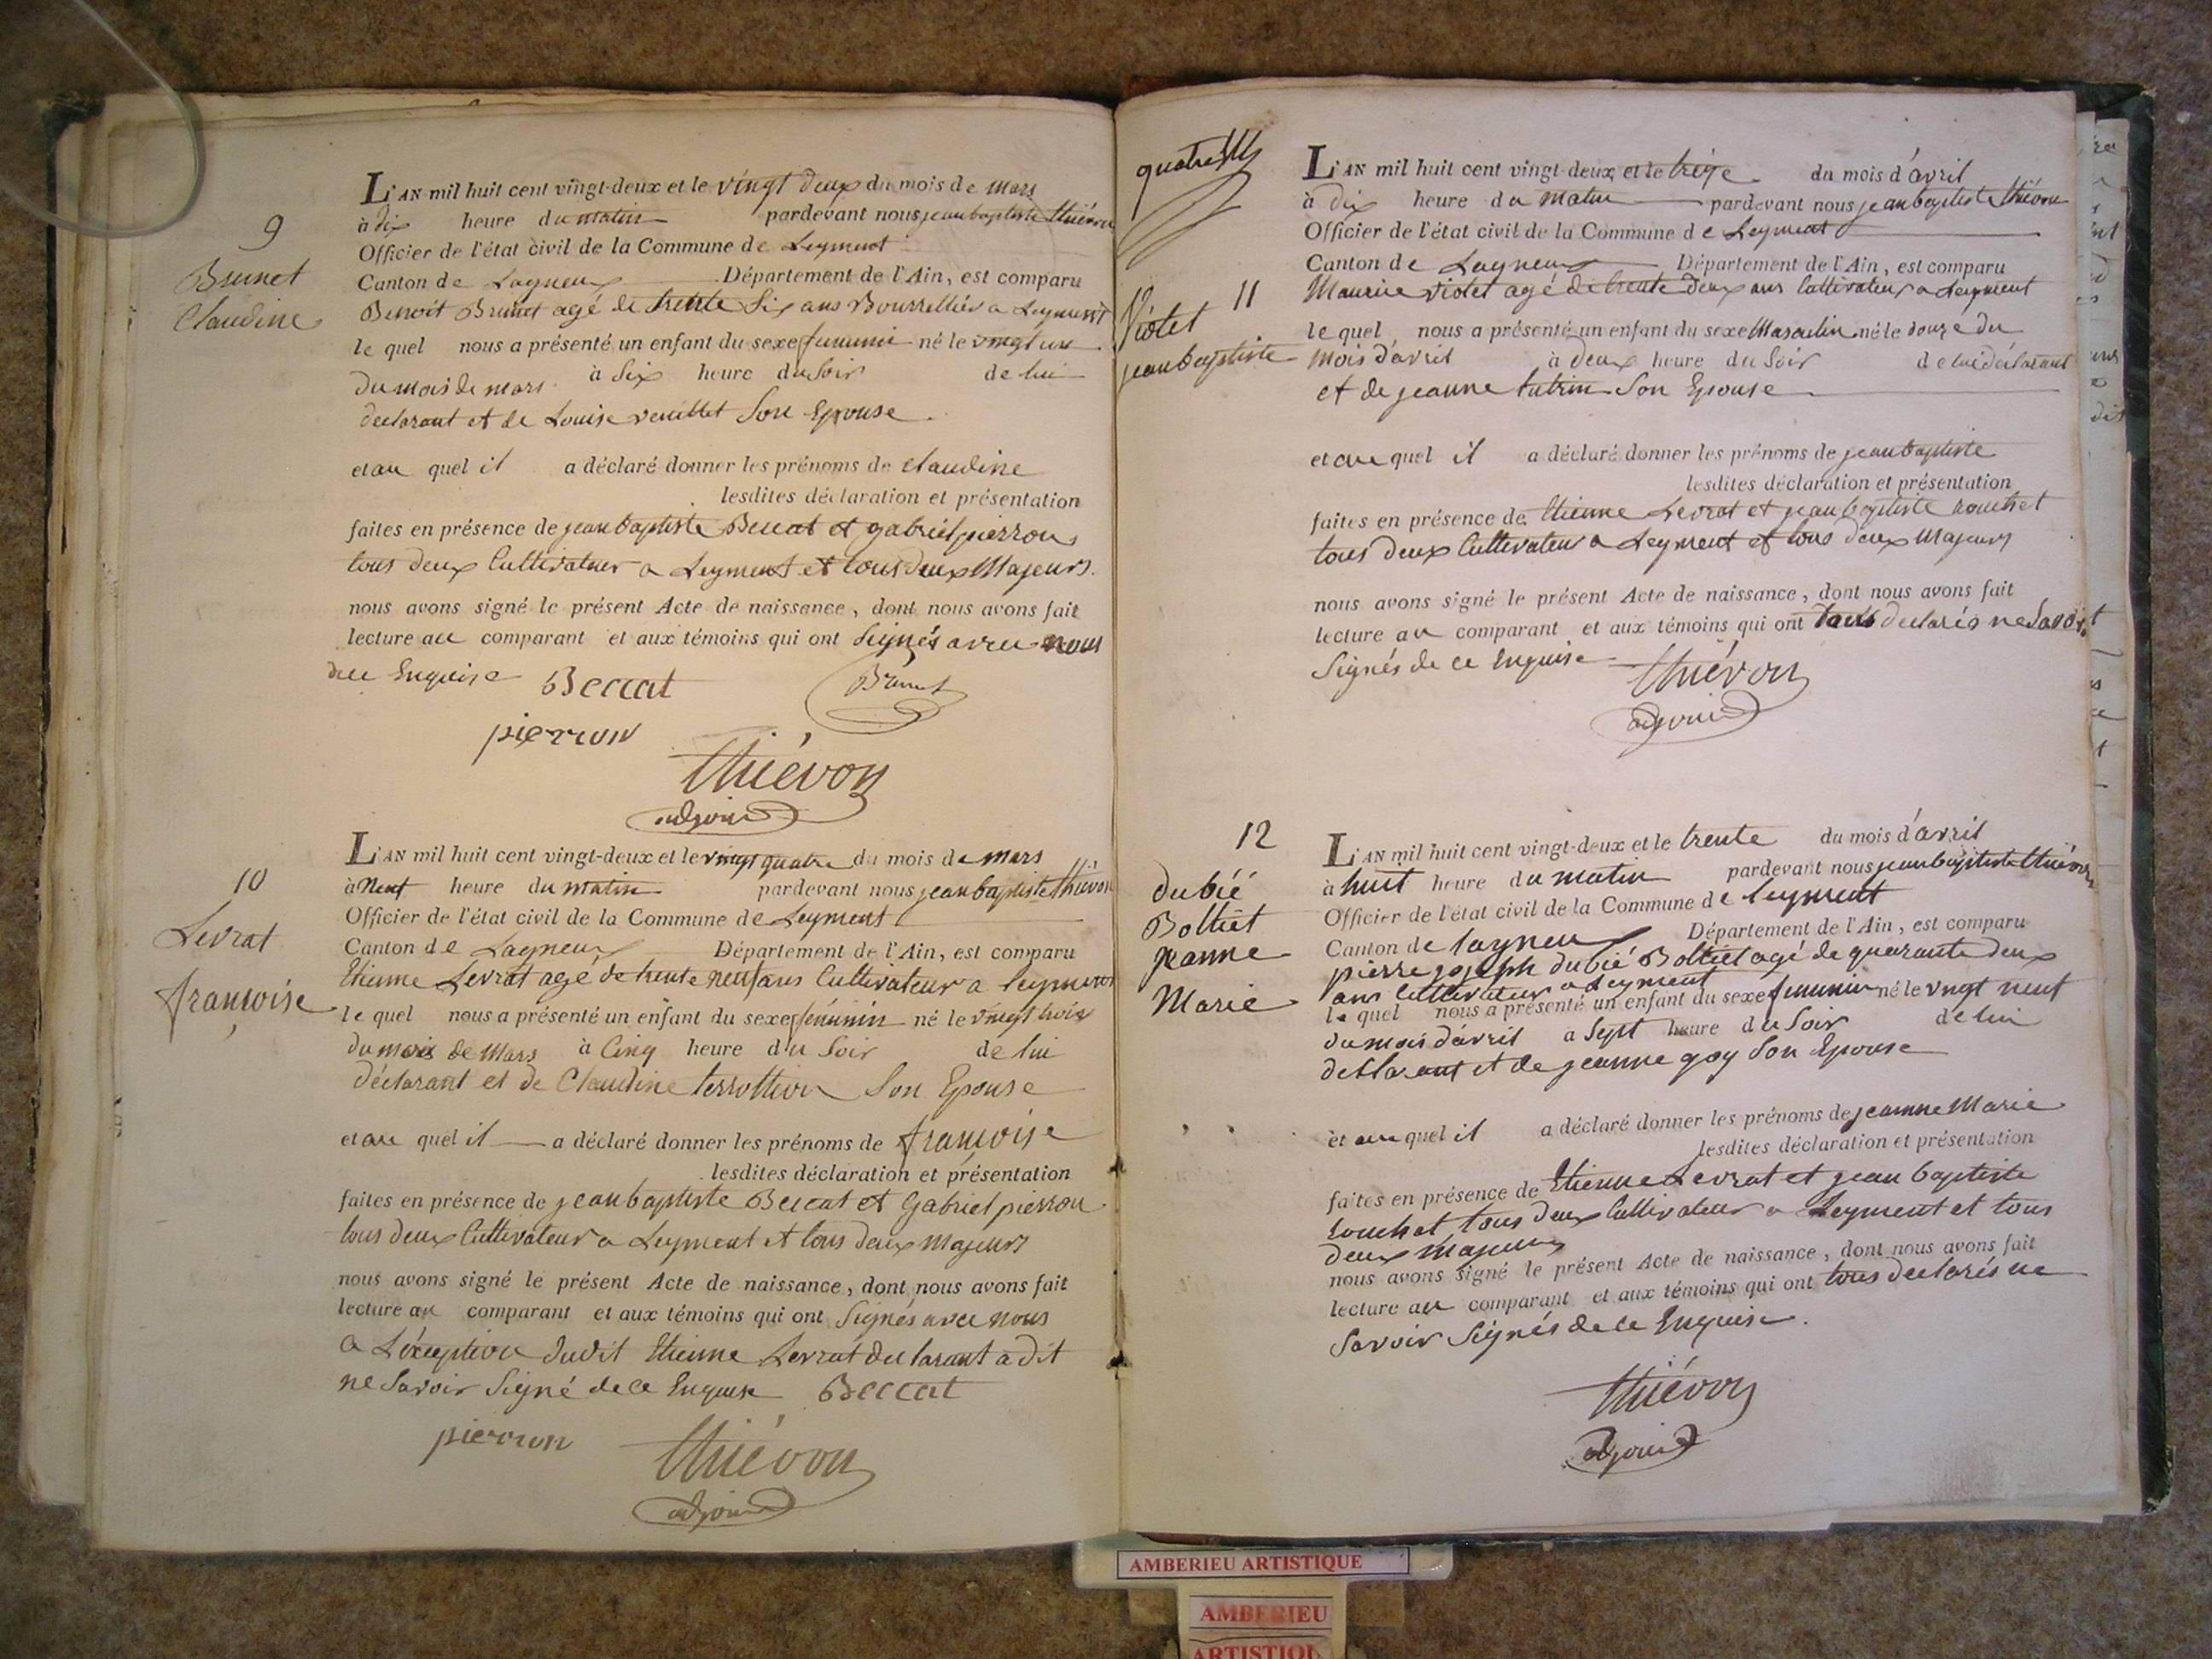 9
Brunet
Claudine
L'AN mil huit cent vingt-deux et le vingt deux du mois de mars
à dix heure du matin pardevant nous jean baptiste thiévon
Officier de l'état civil de la Commune de Leyment
Canton de Lagneux Département de l'Ain, est comparu
Benoit Brunet agé de trente Six ans Bourrellier a Leyment
le quel nous a présenté un enfant du sexe femmin né le vingt un
du mois de mars à Six heure du Soir de lui
declarant et de Louise veuillet Son Epouse
et au quel il a déclaré donner les prénoms de claudine
lesdites déclaration et présentation
faites en présence de jean baptiste Beccat et gabriel pierron
tous deux Cultivateur a Leyment et tous deux Majeurs.
nous avons signé le présent Acte de naissance, dont nous avons fait
lecture au comparant et aux témoins qui ont Signés avec nous
de ce Enquise Beccat Brunet
pierron
thiévon
adjoint
10
Levrat
françoise
L'AN mil huit cent vingt-deux et le vingt quatre du mois de mars
à Neuf heure du matin pardevant nous jean baptiste thiévon
Officier de l'état civil de la Commune de Leyment
Canton de Lagneux Département de l'Ain, est comparu
Etienne Levrat agé de trente neuf ans Cultivateur a leyment
le quel nous a présenté un enfant du sexe féminin né le vingt trois
du mois de Mars à Cinq heure du Soir de lui
déclarant et de Claudine terrottion Son Epouse
et au quel il a déclaré donner les prénoms de françoise
lesdites déclaration et présentation
faites en présence de jean baptiste Beccat et Gabriel pierron
tous deux Cultivateur a Leyment et tous deux majeurs
nous avons signé le présent Acte de naissance, dont nous avons fait
lecture au comparant et aux témoins qui ont Signés avec nous
a L'éxception dudit Etienne Levrat declarant a dit
ne Savoir Signé de ce Enquise Beccat
pierron thiévon
adjoint
quatre
11
Violet
jean baptiste
L'AN mil huit cent vingt-deux et le treize du mois d'avril
à dix heure du matin pardevant nous jean baptiste thiévon
Officier de l'état civil de la Commune de Leyment
Canton de Lagneux Département de l'Ain, est comparu
Maurice violet agé de trente deux ans Cultivateur a Leyment
le quel nous a présenté un enfant du sexe Masculin né le douze du
mois d'avril à deux heure du Soir de lui déclarant
et de jeanne tutrin Son Epouse
et au quel il a déclaré donner les prénoms de jean baptiste
lesdites déclaration et présentation
faites en présence de Etienne Levrat et jean baptiste rouchet
tous deux Cultivateur a Leyment et tous deux Majeurs
nous avons signé le présent Acte de naissance, dont nous avons fait
lecture au comparant et aux témoins qui ont tous declarés ne Savoir
Signés de ce Enquise thiévon
adjoint
12
dubié
Bolliet
jeanne
Marie
L'AN mil huit cent vingt-deux et le trente du mois d'avril
à huit heure du matin pardevant nous jean baptiste thiévon
Officier de l'état civil de la Commune de leyment
Canton de lagneu Département de l'Ain, est comparu
pierre joseph dubié Bolliet agé de quarante deux
ans Cultivateur a Leyment
le quel nous a présenté un enfant du sexe femmin né le vingt neuf
du mois d'avril a Sept heure du Soir de lui
declarant et de jeanne goy Son Epouse
et au quel il a déclaré donner les prénoms de jeanne Marie
lesdites déclaration et présentation
faites en présence de Etienne Levrat et jean baptiste
rouchet tous deux Cultivateur a Leyment et tous
deux majeurs
nous avons signé le présent Acte de naissance, dont nous avons fait
lecture au comparant et aux témoins qui ont tous declarés ne
Savoir Signés de ce Enquise.
thiévon
adjoint
AMBERIEU ARTISTIQUE
AMBERIEU
ARTISTIQU